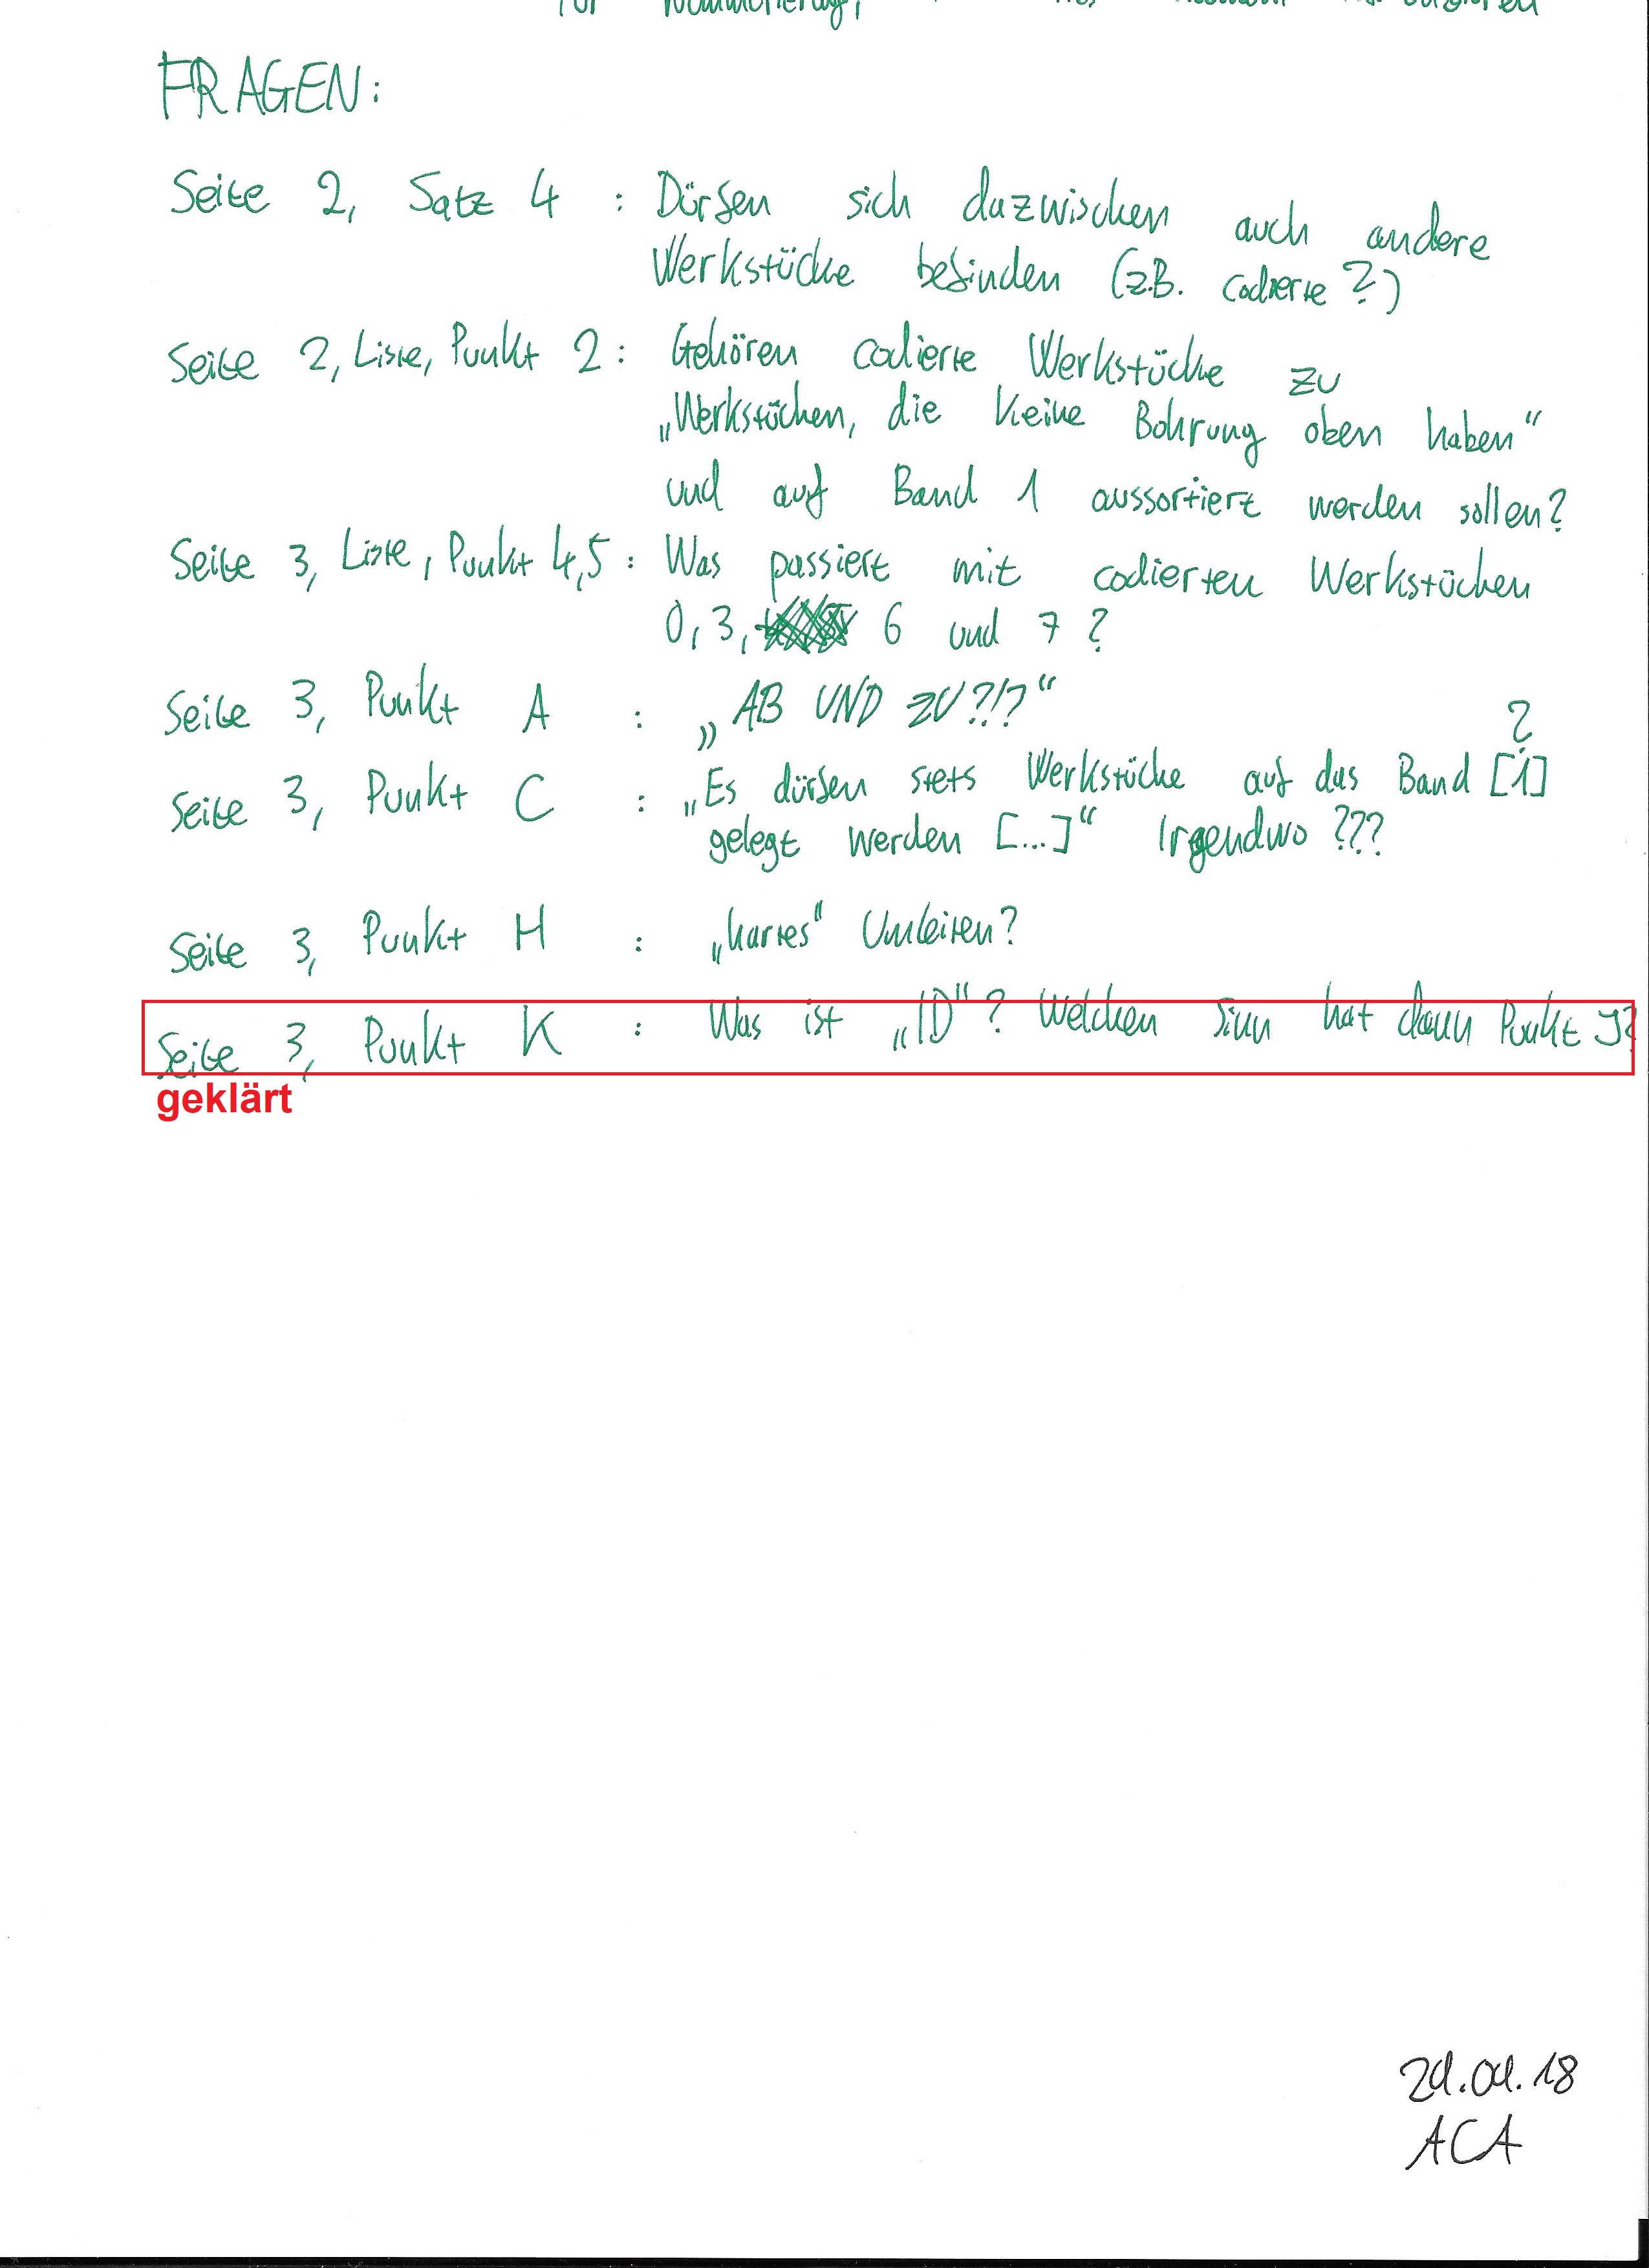 für
FRAGEN:
Seite 2, Satz 4 : Dürfen sich dazwischen auch andere
Werkstücke befinden (z.B. codierte?)
Seite 2, Liste, Punkt 2: Gehören codierte Werkstücke zu
„Werkstücken, die keine Bohrung oben haben“
und auf Band 1 aussortiert werden sollen?
Seite 3, Liste, Punkt 4,5 : Was passiert mit codierten Werkstücken
0, 3, 6 und 7 ?
Seite 3, Punkt A : „AB UND ZU?!?“
?
Seite 3, Punkt C : „Es dürfen stets Werkstücke auf das Band [1]
gelegt werden [...]“ Irgendwo ???
Seite 3, Punkt H : „hartes“ Umleiten?
Seite 3, Punkt K : Was ist „ID“? Welchen Sinn hat dann Punkt J?
geklärt
ACA